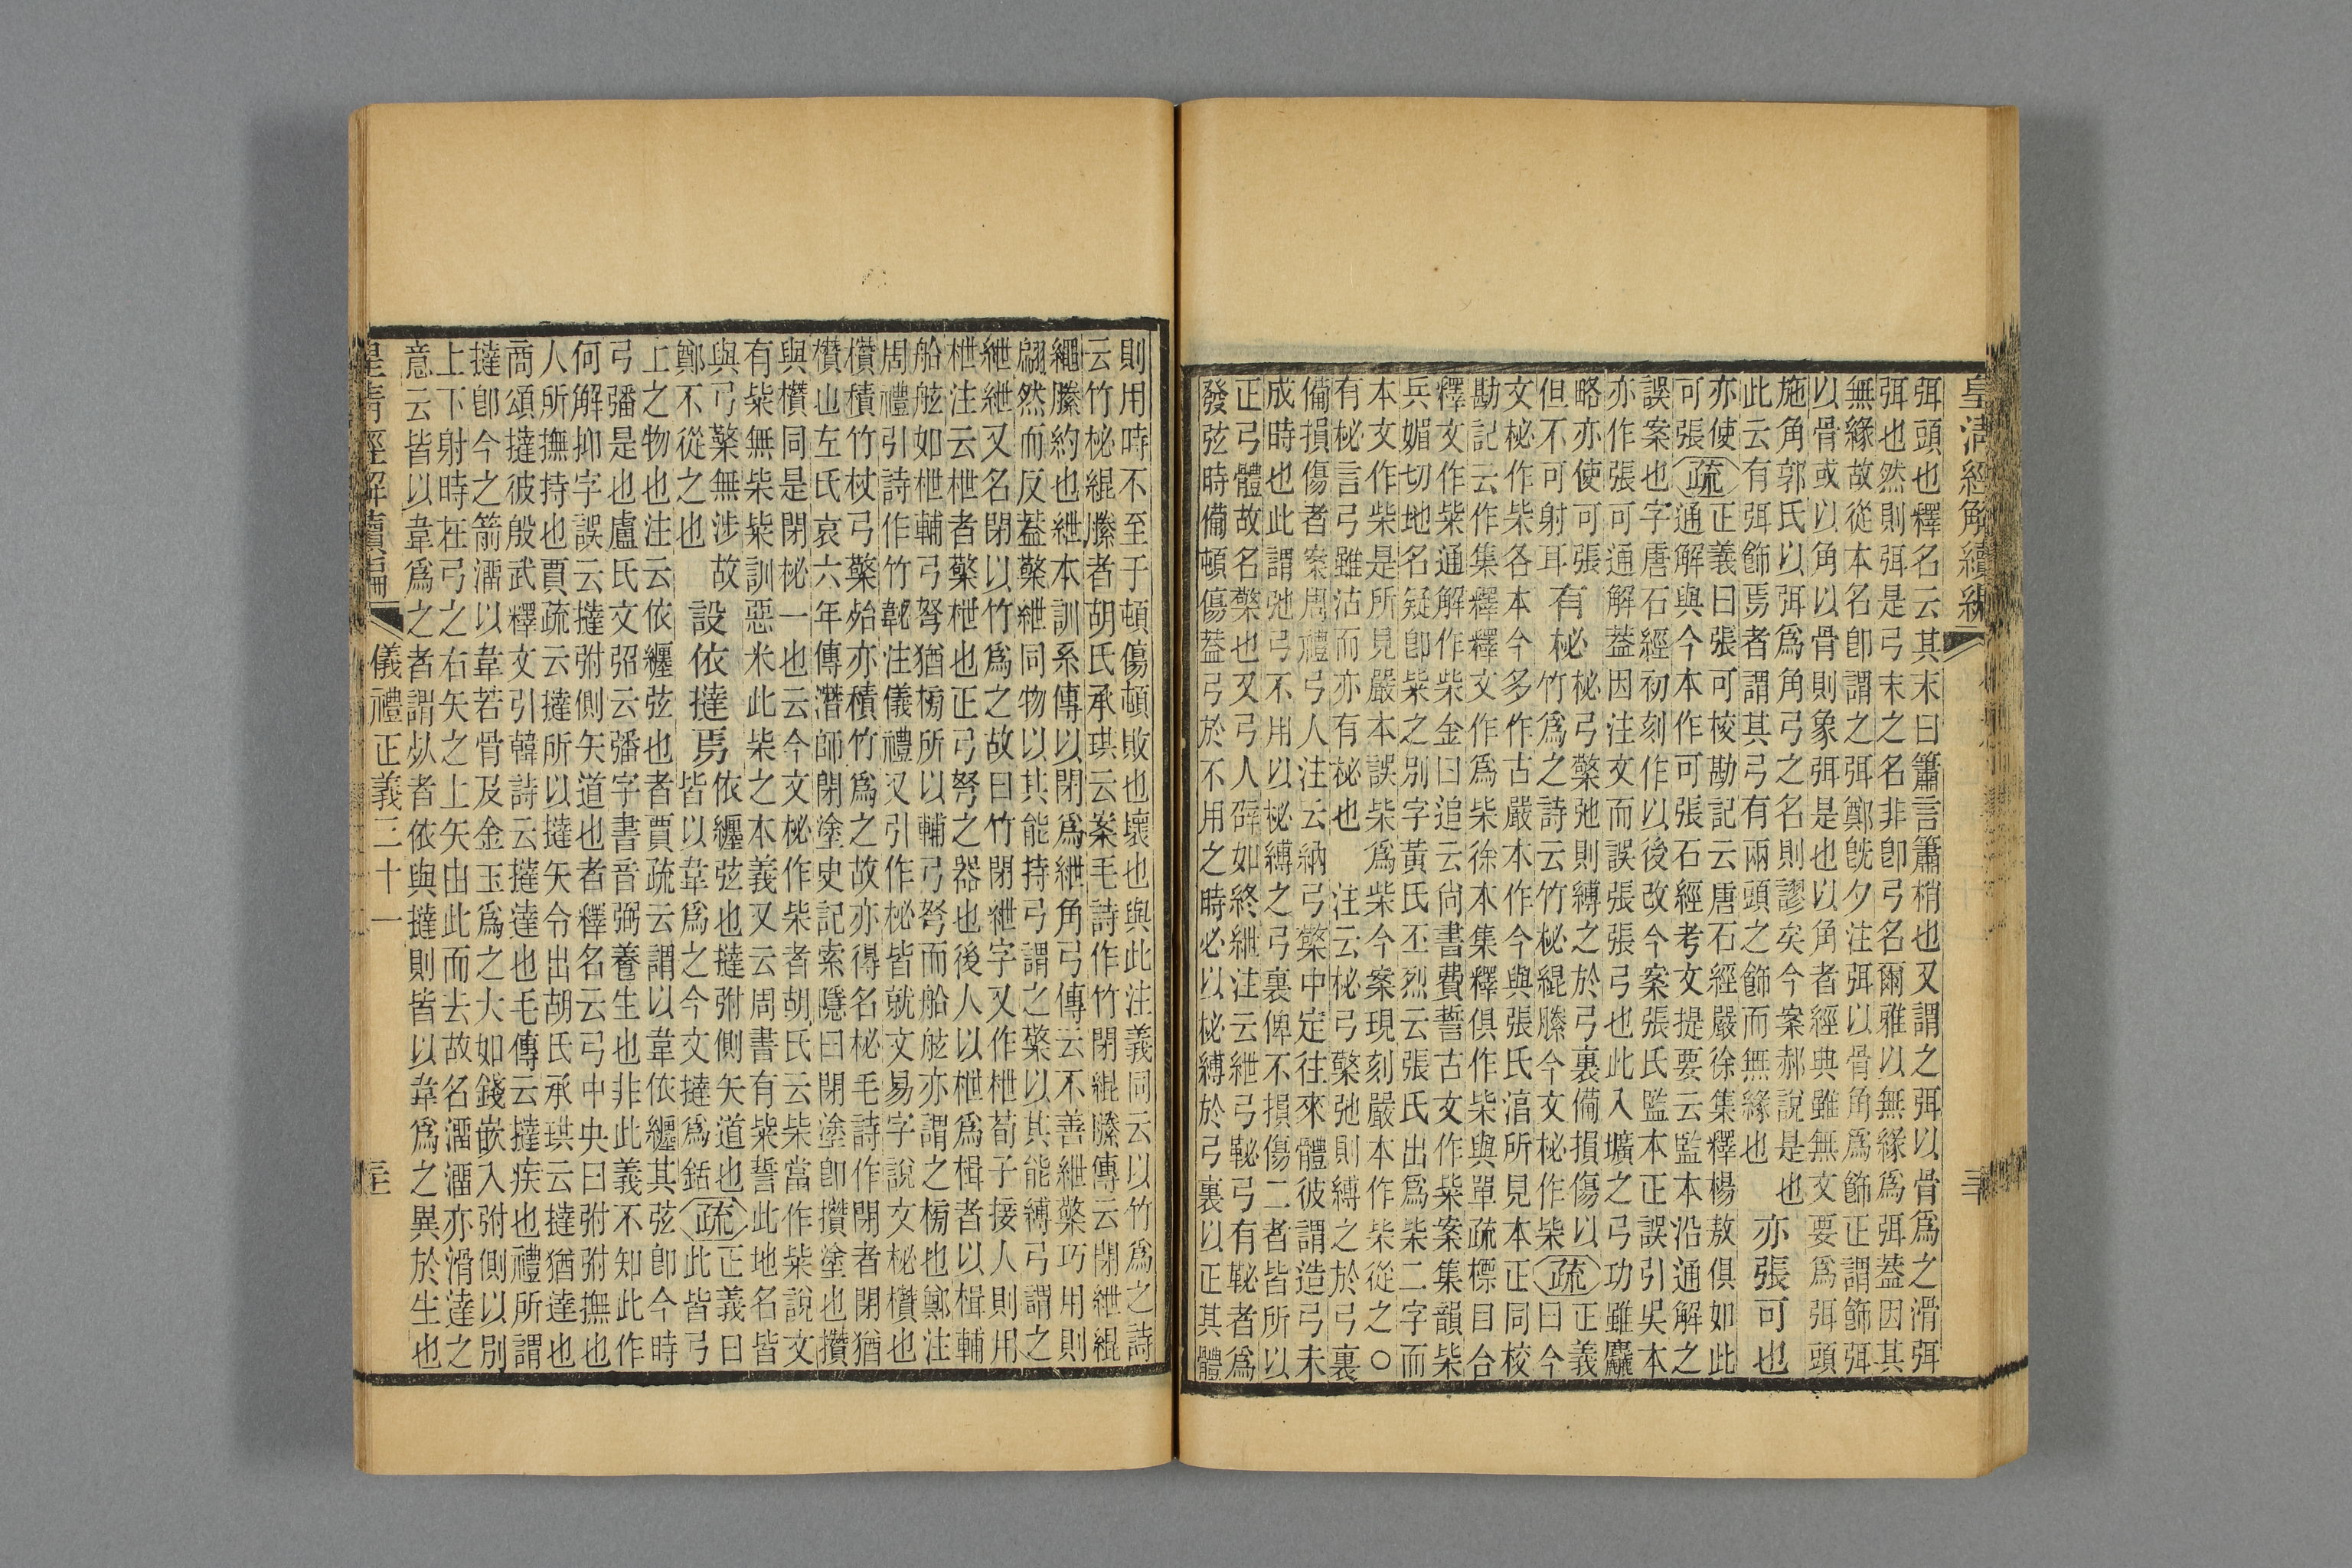 皇清經解續編
三十
弭頭也釋名云其末曰簫言簫梢也又謂之弭以骨爲之滑弭
弭也然則弭是弓末之名非卽弓名爾雅以無緣爲弭葢因其
無緣故從本名卽謂之弭鄭旣夕注弭以骨角爲飾正謂飾弭
以骨或以角以骨則象弭是也以角者經典雖無文要爲弭頭
施角郭氏以弭爲角弓之名則謬矣今案郝說是也
此云有弭飾焉者謂其弓有兩頭之飾而無緣也
亦張可也
亦使
可張
疏
正義曰張可校勘記云唐石經嚴徐集釋楊敖俱如此
通解與今本作可張石經考文提要云監本沿通解之
誤案也字唐石經初刻作以後改今案張氏監本正誤引吳本
亦作張可通解葢因注文而誤張張弓也此入壙之弓功雖麤
略亦使可張
但不可射耳
有柲
柲弓檠弛則縛之於弓裏備損傷以
竹爲之詩云竹柲緄縢今文柲作柴
疏
正義
曰今
文柲作柴各本今多作古嚴本作今與張氏湻所見本正同校
勘記云作集釋釋文作爲柴徐本集釋俱作柴與單疏標目合
釋文作粊通解作柴金曰追云尙書費誓古文作粊案集韻柴
兵媚切地名疑卽粊之別字黃氏丕烈云張氏出爲柴二字而
本文作柴是所見嚴本誤柴爲柴今案現刻嚴本作柴從之○
有柲言弓雖沽而亦有柲也 注云柲弓檠弛則縛之於弓裏
備損傷者案周禮弓人注云納弓檠中定往來體彼謂造弓未
成時也此謂弛弓不用以柲縛之弓裏俾不損傷二者皆所以
正弓體故名檠也又弓人辟如終紲注云紲弓䪐弓有䪐者爲
發弦時備頓傷葢弓於不用之時必以柲縛於弓裏以正其體
則用時不至于頓傷頓敗也壞也與此注義同云以竹爲之詩
云竹柲緄縢者胡氏承珙云案毛詩作竹閉緄縢傳云閉紲緄
繩縢約也紲本訓系傳以閉爲紲角弓傳云不善紲檠巧用則
翩然而反葢檠紲同物以其能持弓謂之檠以其能縛弓謂之
紲紲又名閉以竹爲之故曰竹閉紲字又作枻荀子接人則用
枻注云枻者檠枻也正弓弩之器也後人以枻爲楫者以楫輔
船舷如枻輔弓弩猶榜所以輔弓弩而船舷亦謂之榜也鄭注
周禮引詩作竹䪐注儀禮又引作柲皆就文易字說文柲欑也
欑積竹杖弓檠殆亦積竹爲之故亦得名柲毛詩作閉者閉猶
欑也左氏哀六年傳潛師閉塗史記索隱曰閉塗卽攢塗也攢
與欑同是閉柲一也云今文柲作柴者胡氏云柴當作粊說文
有粊無柴粊訓惡米此柴之本義又云周書有粊誓此地名皆
與弓檠無涉故
鄭不從之也
設依撻焉
依纏弦也撻弣側矢道也
皆以韋爲之今文撻爲銛
疏
正義曰
此皆弓
上之物也注云依纏弦也者賈疏云謂以韋依纏其弦卽今時
弓是也盧氏文弨云字書音弼養生也非此義不知此作
何解抑字誤云撻弣側矢道也者釋名云弓中央曰弣弣撫也
人所撫持也賈疏云撻所以撻矢令出胡氏承珙云撻猶達也
商頌撻彼殷武釋文引韓詩云撻達也毛傳云撻疾也禮所謂
撻卽今之箭溜以韋若骨及金玉爲之大如錢嵌入弣側以別
上下射時在弓之右矢之上矢由此而去故名溜溜亦滑達之
意云皆以韋爲之者謂死者依與撻則皆以韋爲之異於生也
皇清經解續編
儀禮正義三十一